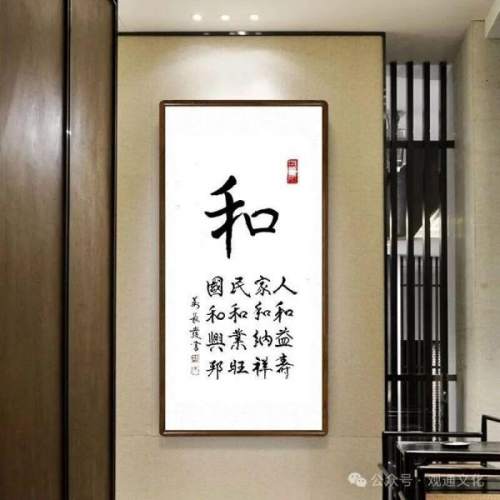 和
人和益壽
家和納祥
民和業旺
國和興邦
公众号 · 观通文化